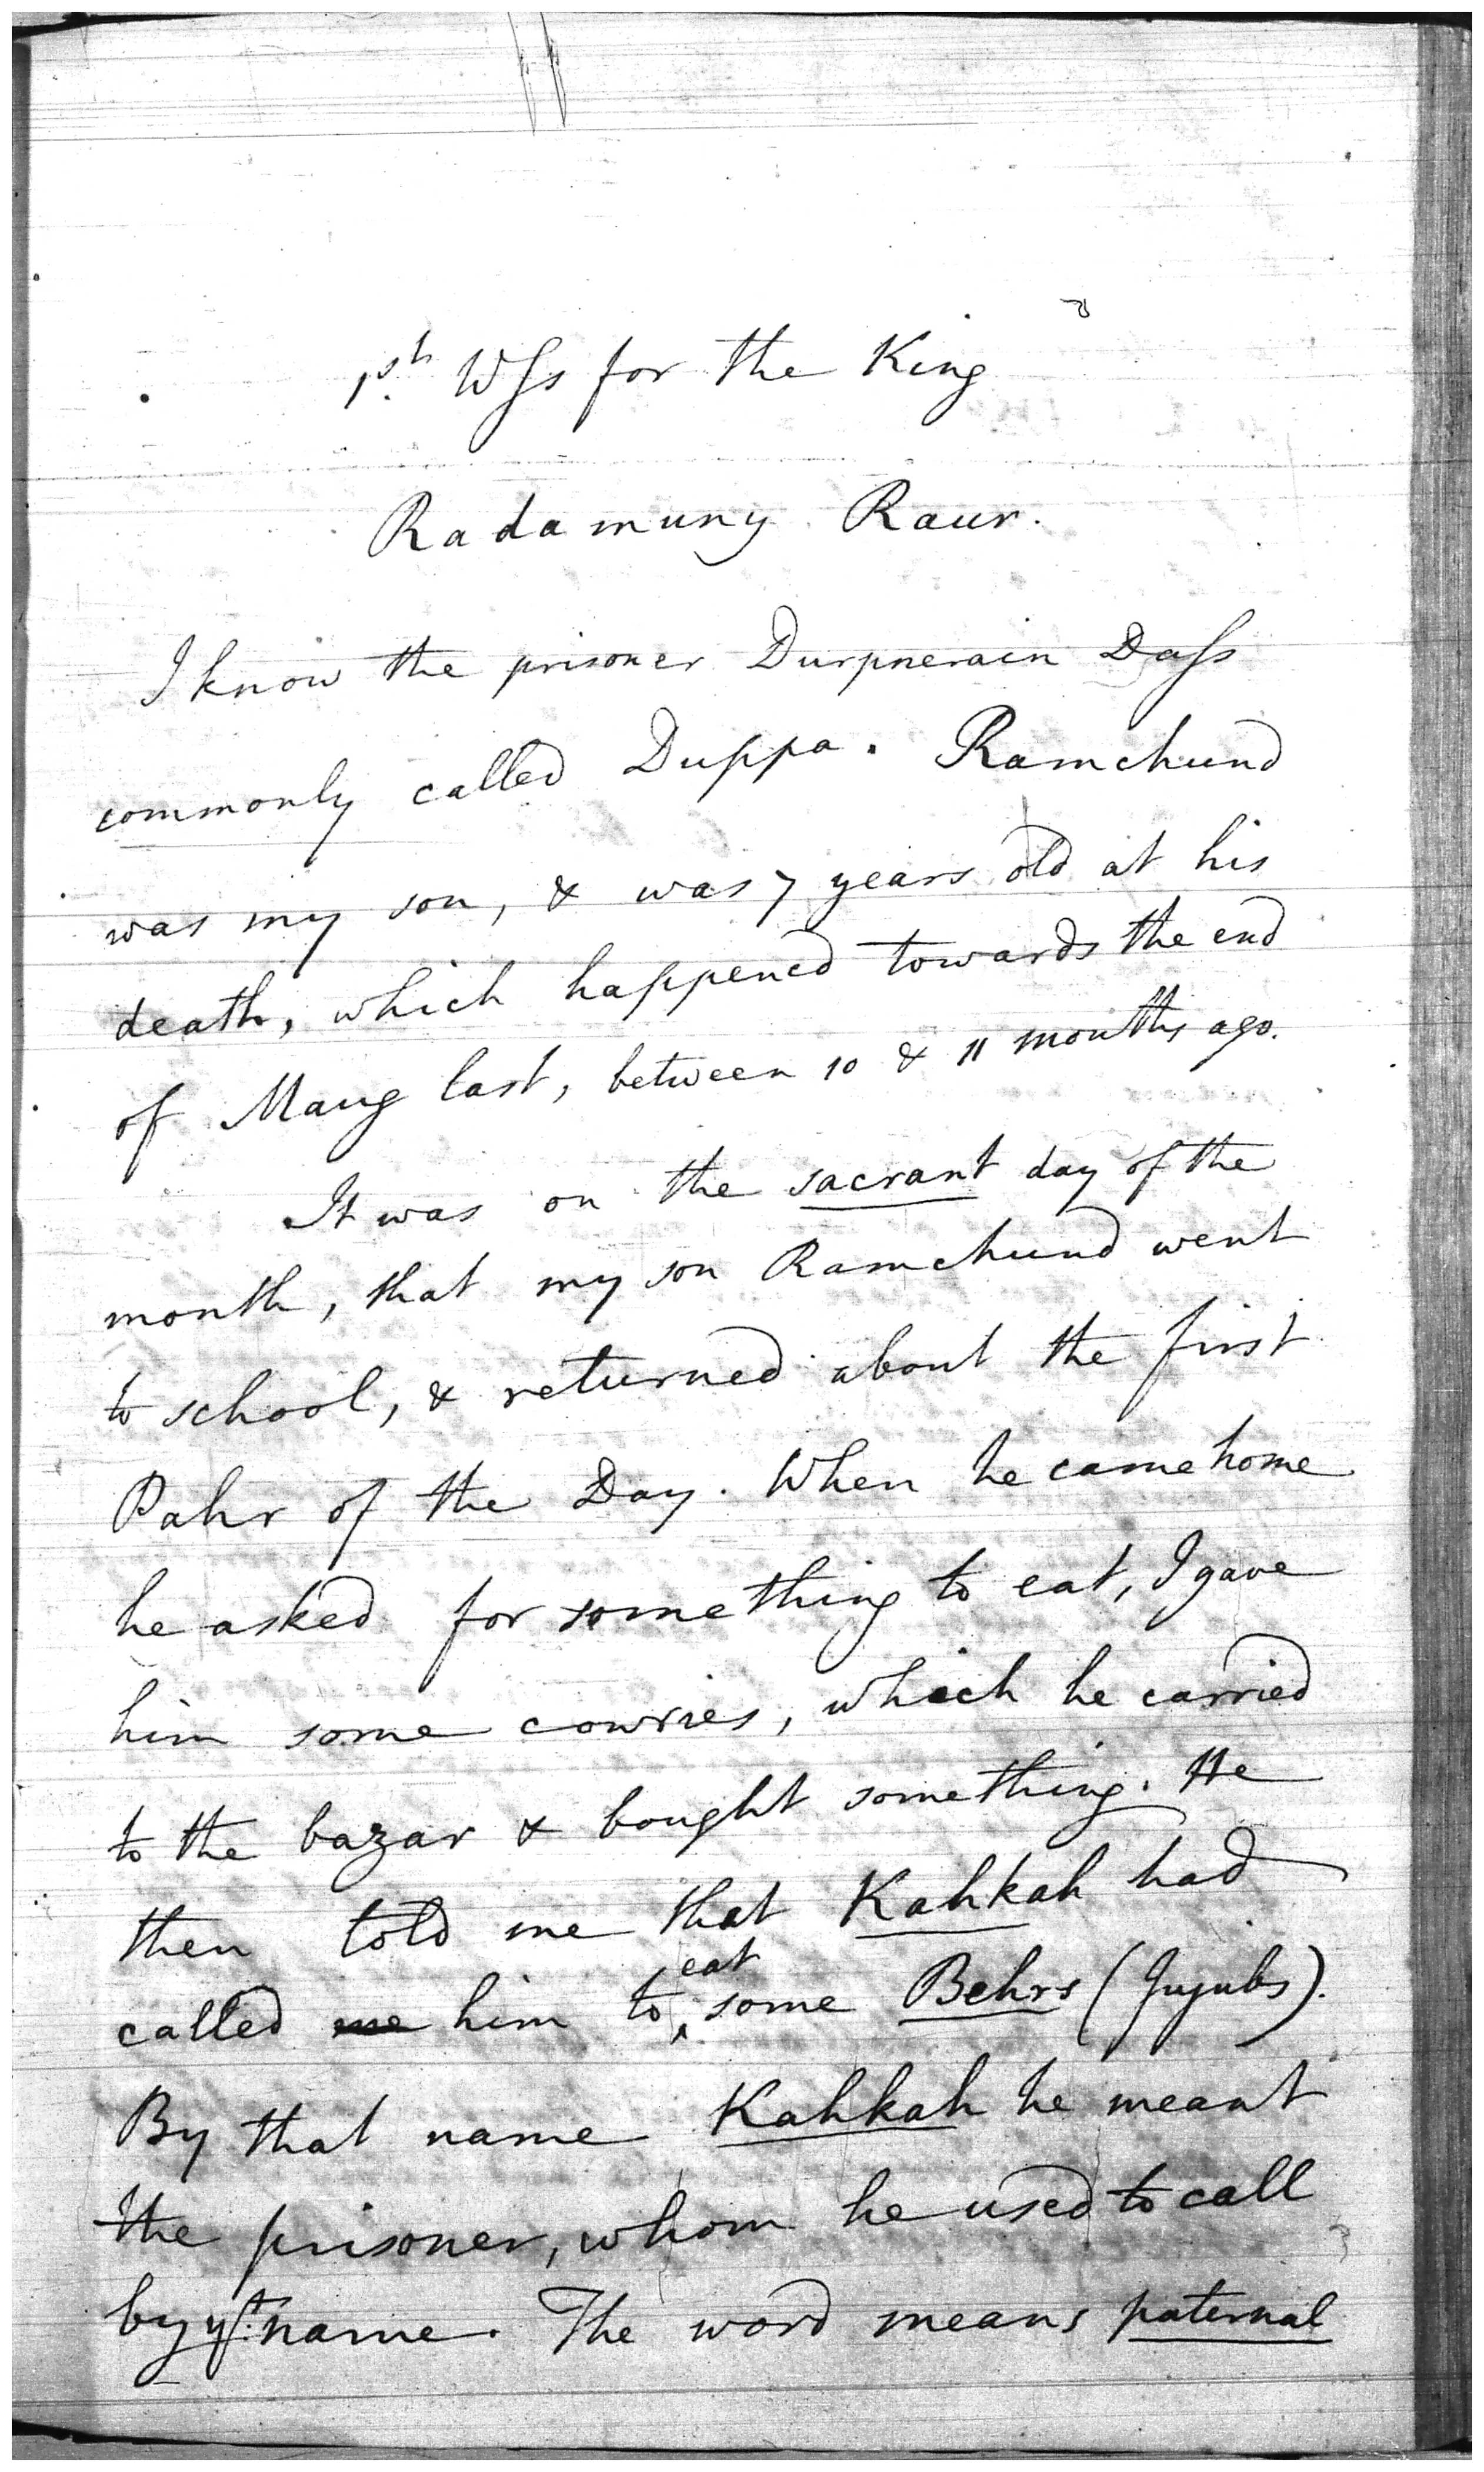 1st Wss for the King
Radamuny Raur.
I know the prisoner Durpnerain Dass
commonly called Duppa. Ramchund
was my son, & was 7 years old at his
death, which happened towards the end
of Maug last, between 10 & 11 months ago.
It was on the sacrant day of the
month, that my son Ramchund went
to school, & returned about the first
Pahr of the Day. When he came home
he asked for something to eat, I gave
him some cowries, which he carried
to the bazar & bought something. He
then told me that Kahkah had
called me him to eat some Behrs (Jujubs).
By that name Kahkah he meant
the prisoner, whom he used to call
by yt. name. The word means paternal